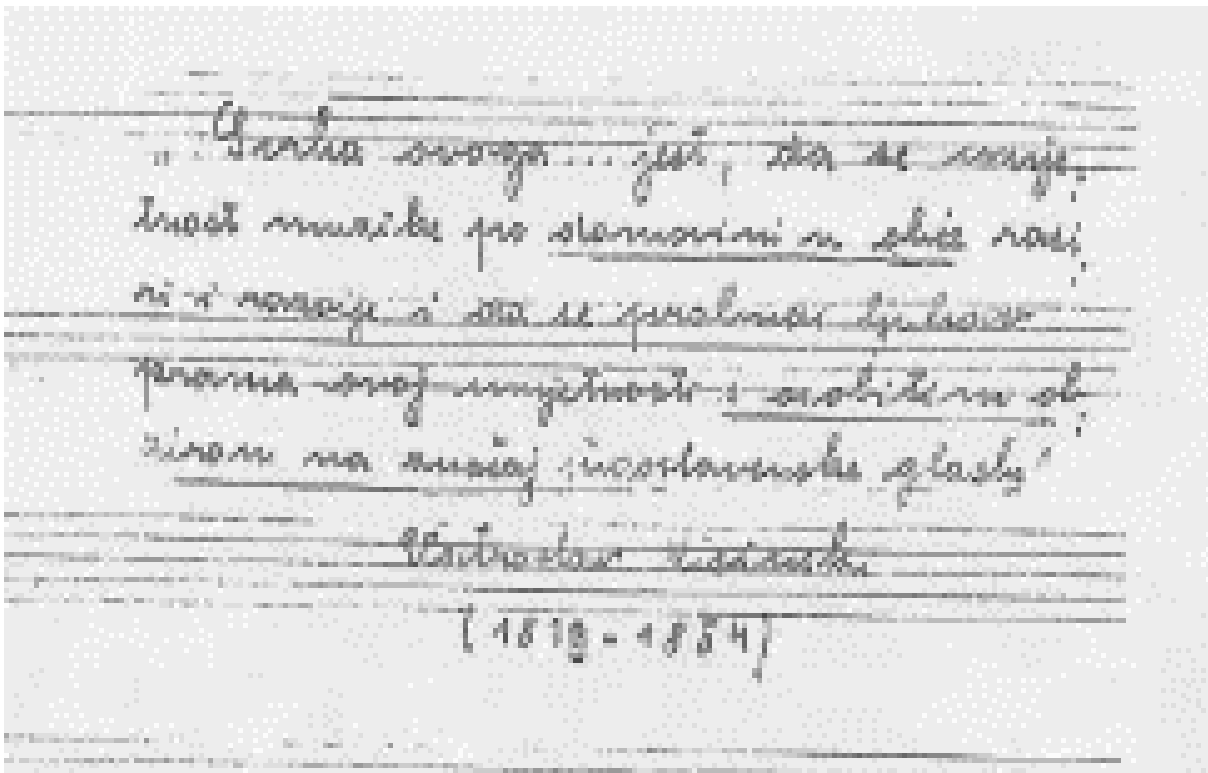 „Svrha ovoga... jest, da se umje-
tnost muzike po domovini u obće raši-
ri i razvije i da se probudi ljubav
prama ovoj umjetnosti s osobitim ob-
zirom na južno slavenske glasbe"
Vatroslav Lisinski
(1819-1854)